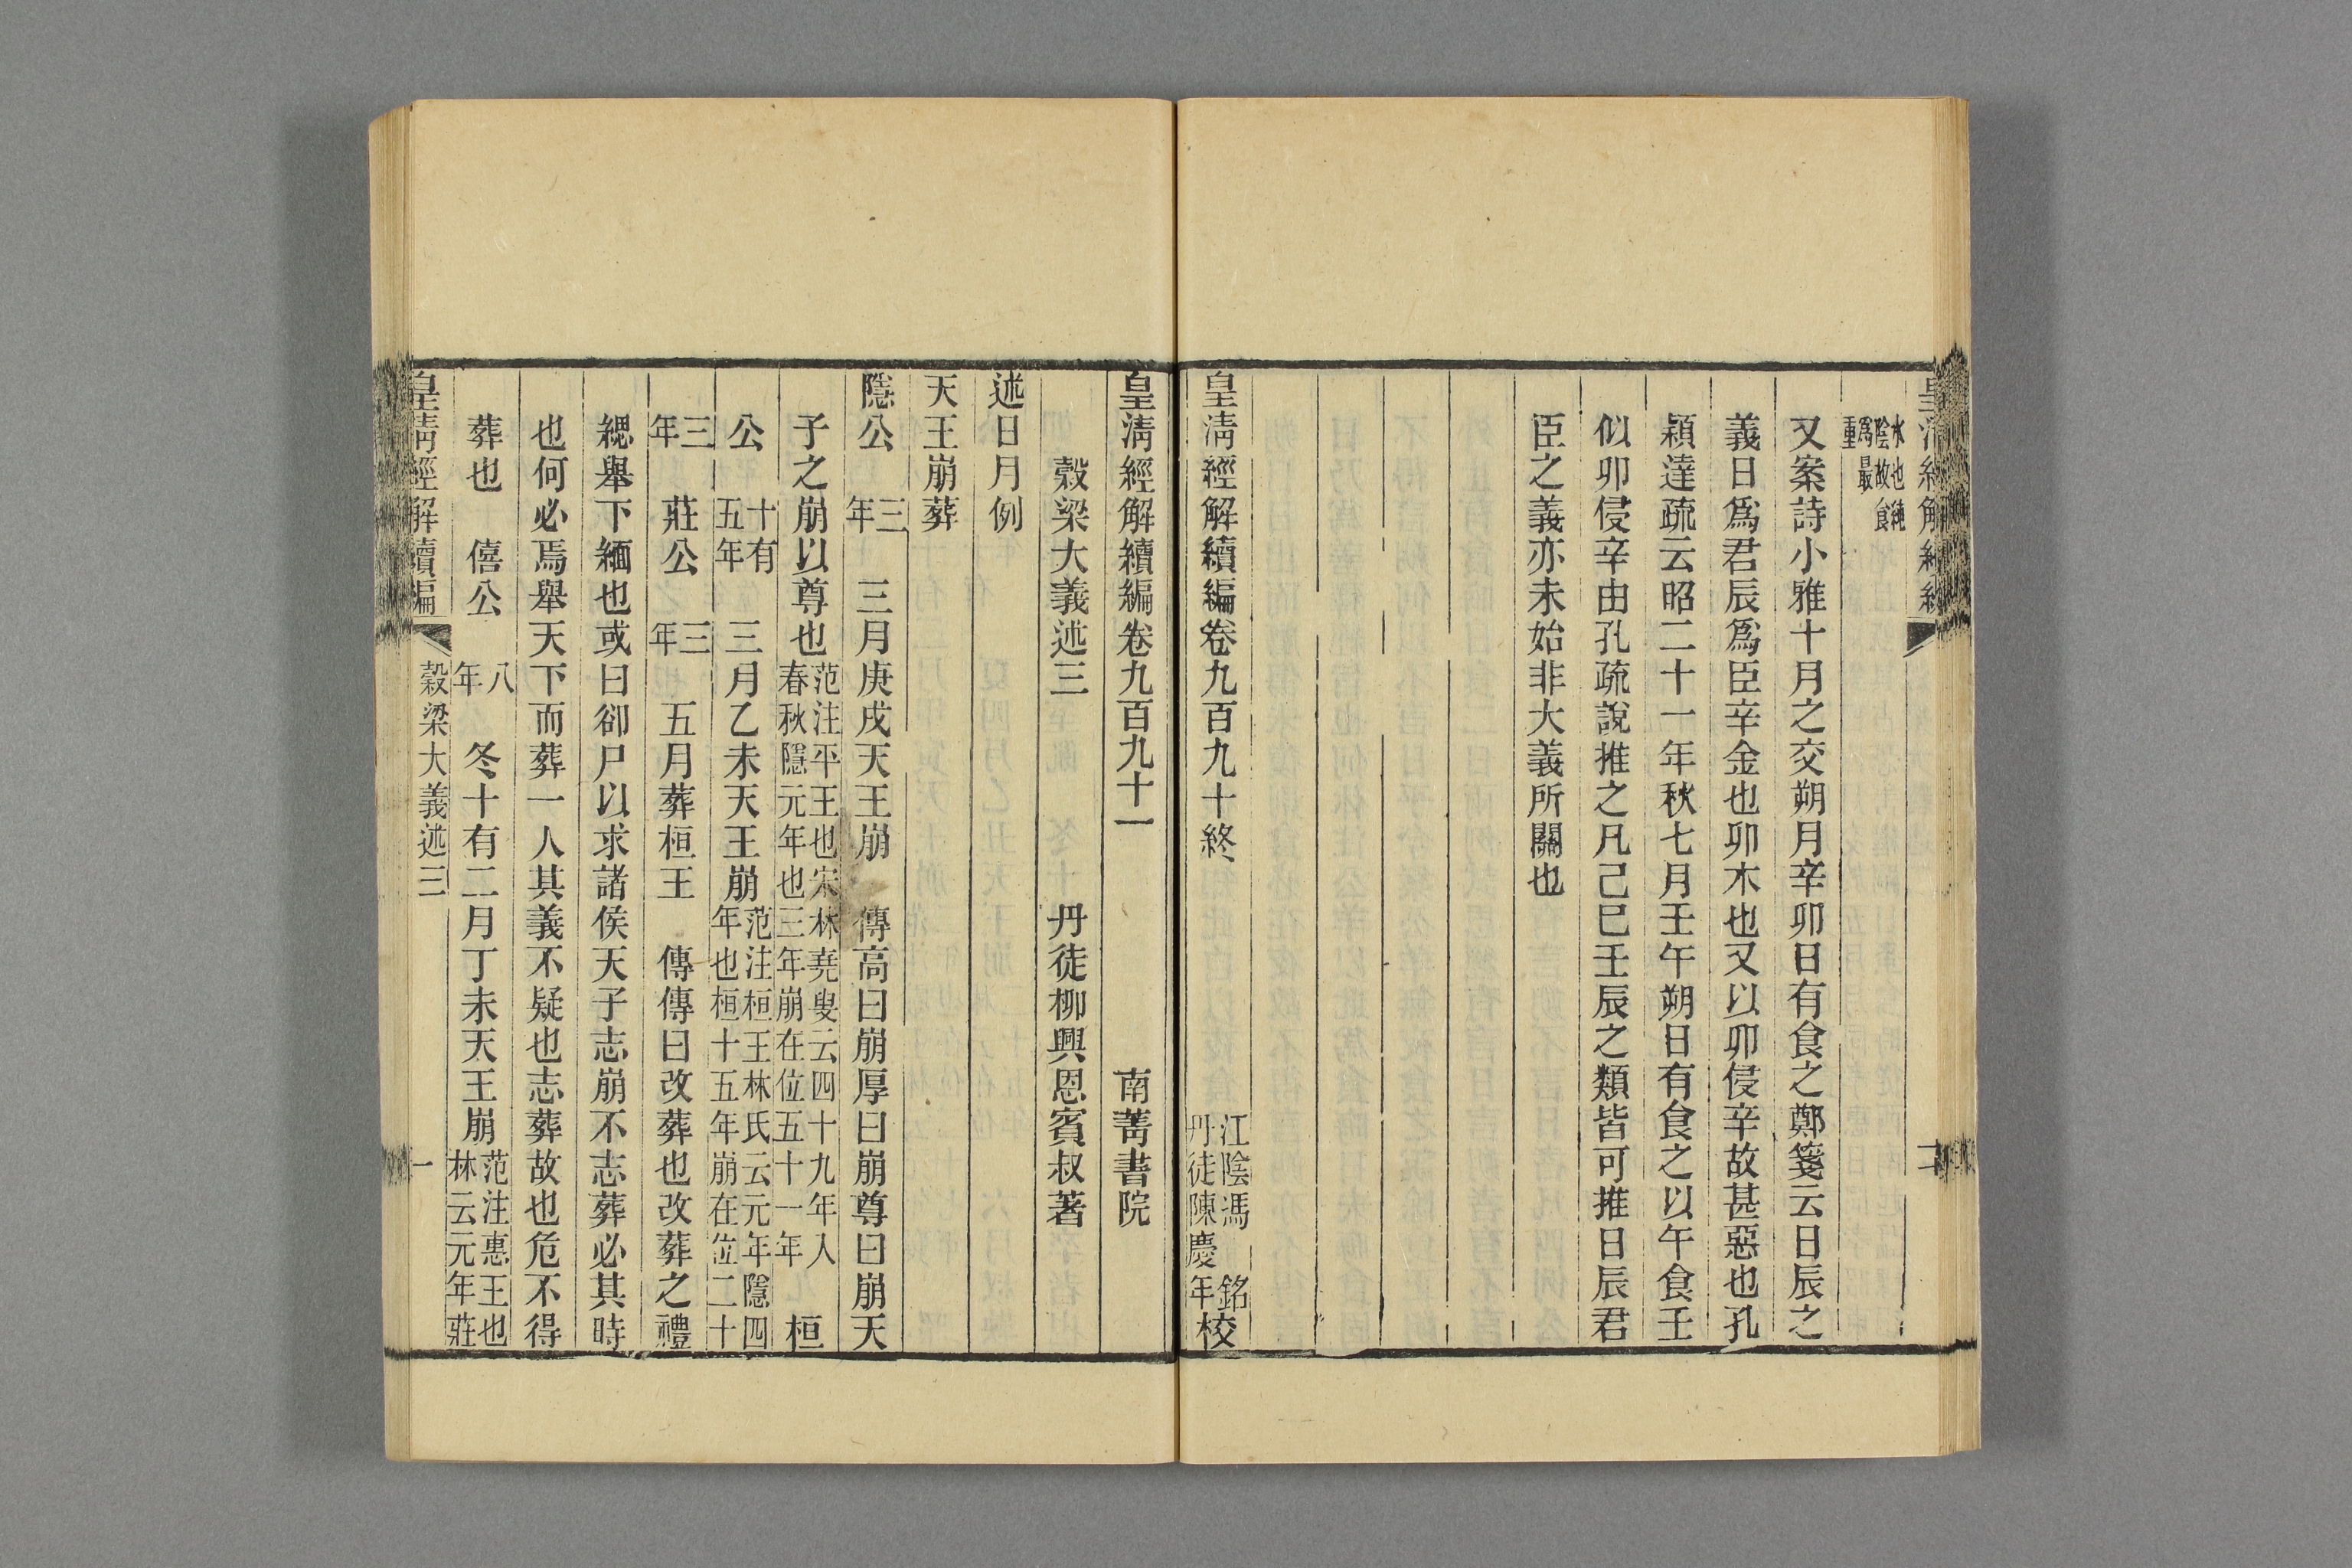 水也純陰故食
爲最重
又案詩小雅十月之交朔月辛卯日有食之鄭箋云日辰之
義日爲君辰爲臣辛金也卯木也又以卯侵辛故甚惡也孔
穎達疏云昭二十一年秋七月壬午朔日有食之以午食壬
似卯侵辛由孔疏說推之凡己巳壬辰之類皆可推日辰君
臣之義亦未始非大義所關也
皇清經解續編卷九百九十終
江陰馮銘
丹徒陳慶年校
皇清經解續編卷九百九十一
南菁書院
穀梁大義述三
丹徒柳興恩賓叔著
述日月例
天王崩葬
隱公
三年
三月庚戌天王崩
傳高曰崩厚曰崩尊曰崩天
子之崩以尊也
范注平王也宋林堯叟云四十九年入
春秋隱元年也三年崩在位五十一年
桓
公
十有五年
三月乙未天王崩
范注桓王林氏云元年隱四
年也桓十五年崩在位二十
三年
莊公
三年
五月葬桓王
傳傳曰改葬也改葬之禮
緦舉下緬也或曰郤尸以求諸侯天子志崩不志葬必其時
也何必焉舉天下而葬一人其義不疑也志葬故也危不得
葬也
僖公
八年
冬十有二月丁未天王崩
范注惠王也
林云元年莊
皇清經解續編
穀梁大義述三
一